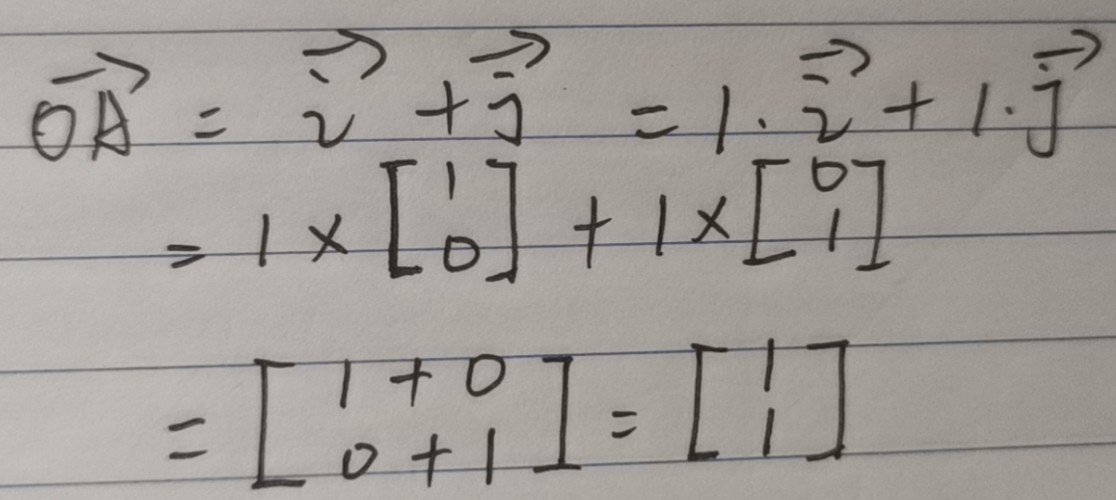 $\overrightarrow{OA} = \overrightarrow{i} + \overrightarrow{j} = 1 \cdot \overrightarrow{i} + 1 \cdot \overrightarrow{j}$
$= 1 \times \begin{bmatrix} 1 \\ 0 \end{bmatrix} + 1 \times \begin{bmatrix} 0 \\ 1 \end{bmatrix}$
$= \begin{bmatrix} 1 + 0 \\ 0 + 1 \end{bmatrix} = \begin{bmatrix} 1 \\ 1 \end{bmatrix}$